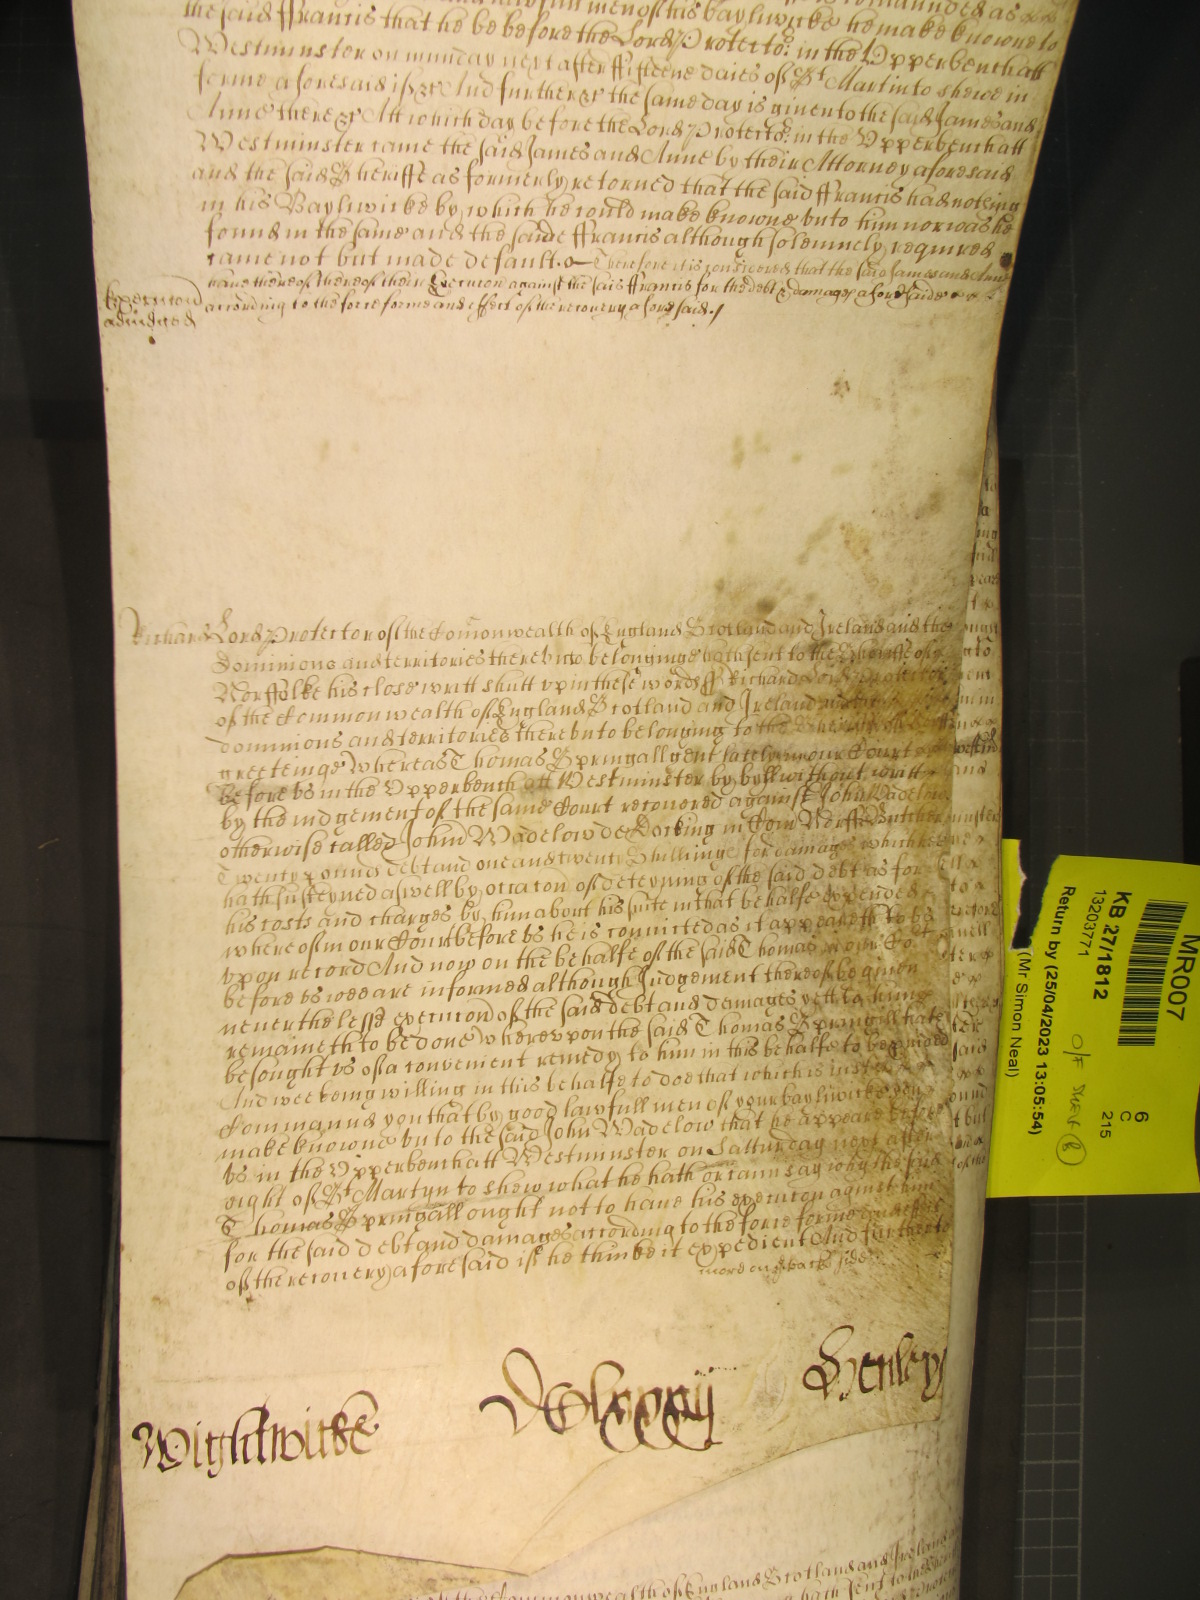 the said Francis that he be before the Lord Protector in the Upperbench att
Westminster on munday next after fifteene daies of St Martin to shewe in
forme aforesaid if &c And further &c the same day is given to the said James and
Anne there &c Att which day before the Lord Protector in the Upperbench att
Westminster came the said James and Anne by their Attorney aforesaid
and the said Sheriffe as formerly retorned that the said Francis had nothing
in his Bayliwicke by which he could make knowne unto him nor was he
found in the same and the saide Francis although solemnely required
came not but made default. Therefore it is considered that the said James and Anne
have thereof their Execution against the said Francis for the debt & damages aforesaide
according to the force forme and effect of the recovery aforesaid./
Execution
adjudged
Richard Lord Protector of the Comonwealth of England Scotland and Ireland and the
Dominions and territories thereunto belonginge hath sent to the Sheriffe of
Norffolke his close writt shutt up in these words ss Richard Lord Protector
of the Commonwealth of England Scotland and Ireland and the
dominions and territories thereunto belonging to the Sheriffe of
greeteinge Whereas Thomas Springall gent lately in our Court
before us in the Upperbench att Westminster by byll without writt
by the iudgement of the same Court recovered against John Wadelow
otherwise called John Wadelow de Docking in Com Norff Butcher
Twenty pounds debt and one and twenty Shillings for damages which he
hath susteyned aswell by occacon of deteyning of the said debt as for
his costs and charges by him about his suite in that behalfe expended
whereof in our Court before us he is convicted as it appeareth to us
upon record And now on the behalfe of the said Thomas in our Court
before us wee are informed although Judgement thereof be given
neverthelesse execucion of the said debt and damages yett to him
remaineth to be done whereupon the said Thomas Springall hath
besought us of a convenient remedy to him in this behalfe to be provided
And wee being willing in this behalfe to doe that which is just
Command you that by good lawfull men of your bayliwicke you
make knowne unto the said John Wadelow that he appeare before
us in the Upperbench att Westminster on Satturday next after
eight of St Martyn to shew what he hath or cann say why the said
Thomas Springall ought not to have his execucion against him
for the said debt and damages according to the force forme and effect
of the recovery aforesaid if he thinke it expedient And further to
more on ye backe side
Wightwicke
Henley
MR007
KB 27/1812
13203771
6
C
215
O/F SHELF 8
Return by (25/04/2023 13:05:54)
(Mr Simon Neal)
Commonwealth of England Scotland and Ireland
hath sent to the